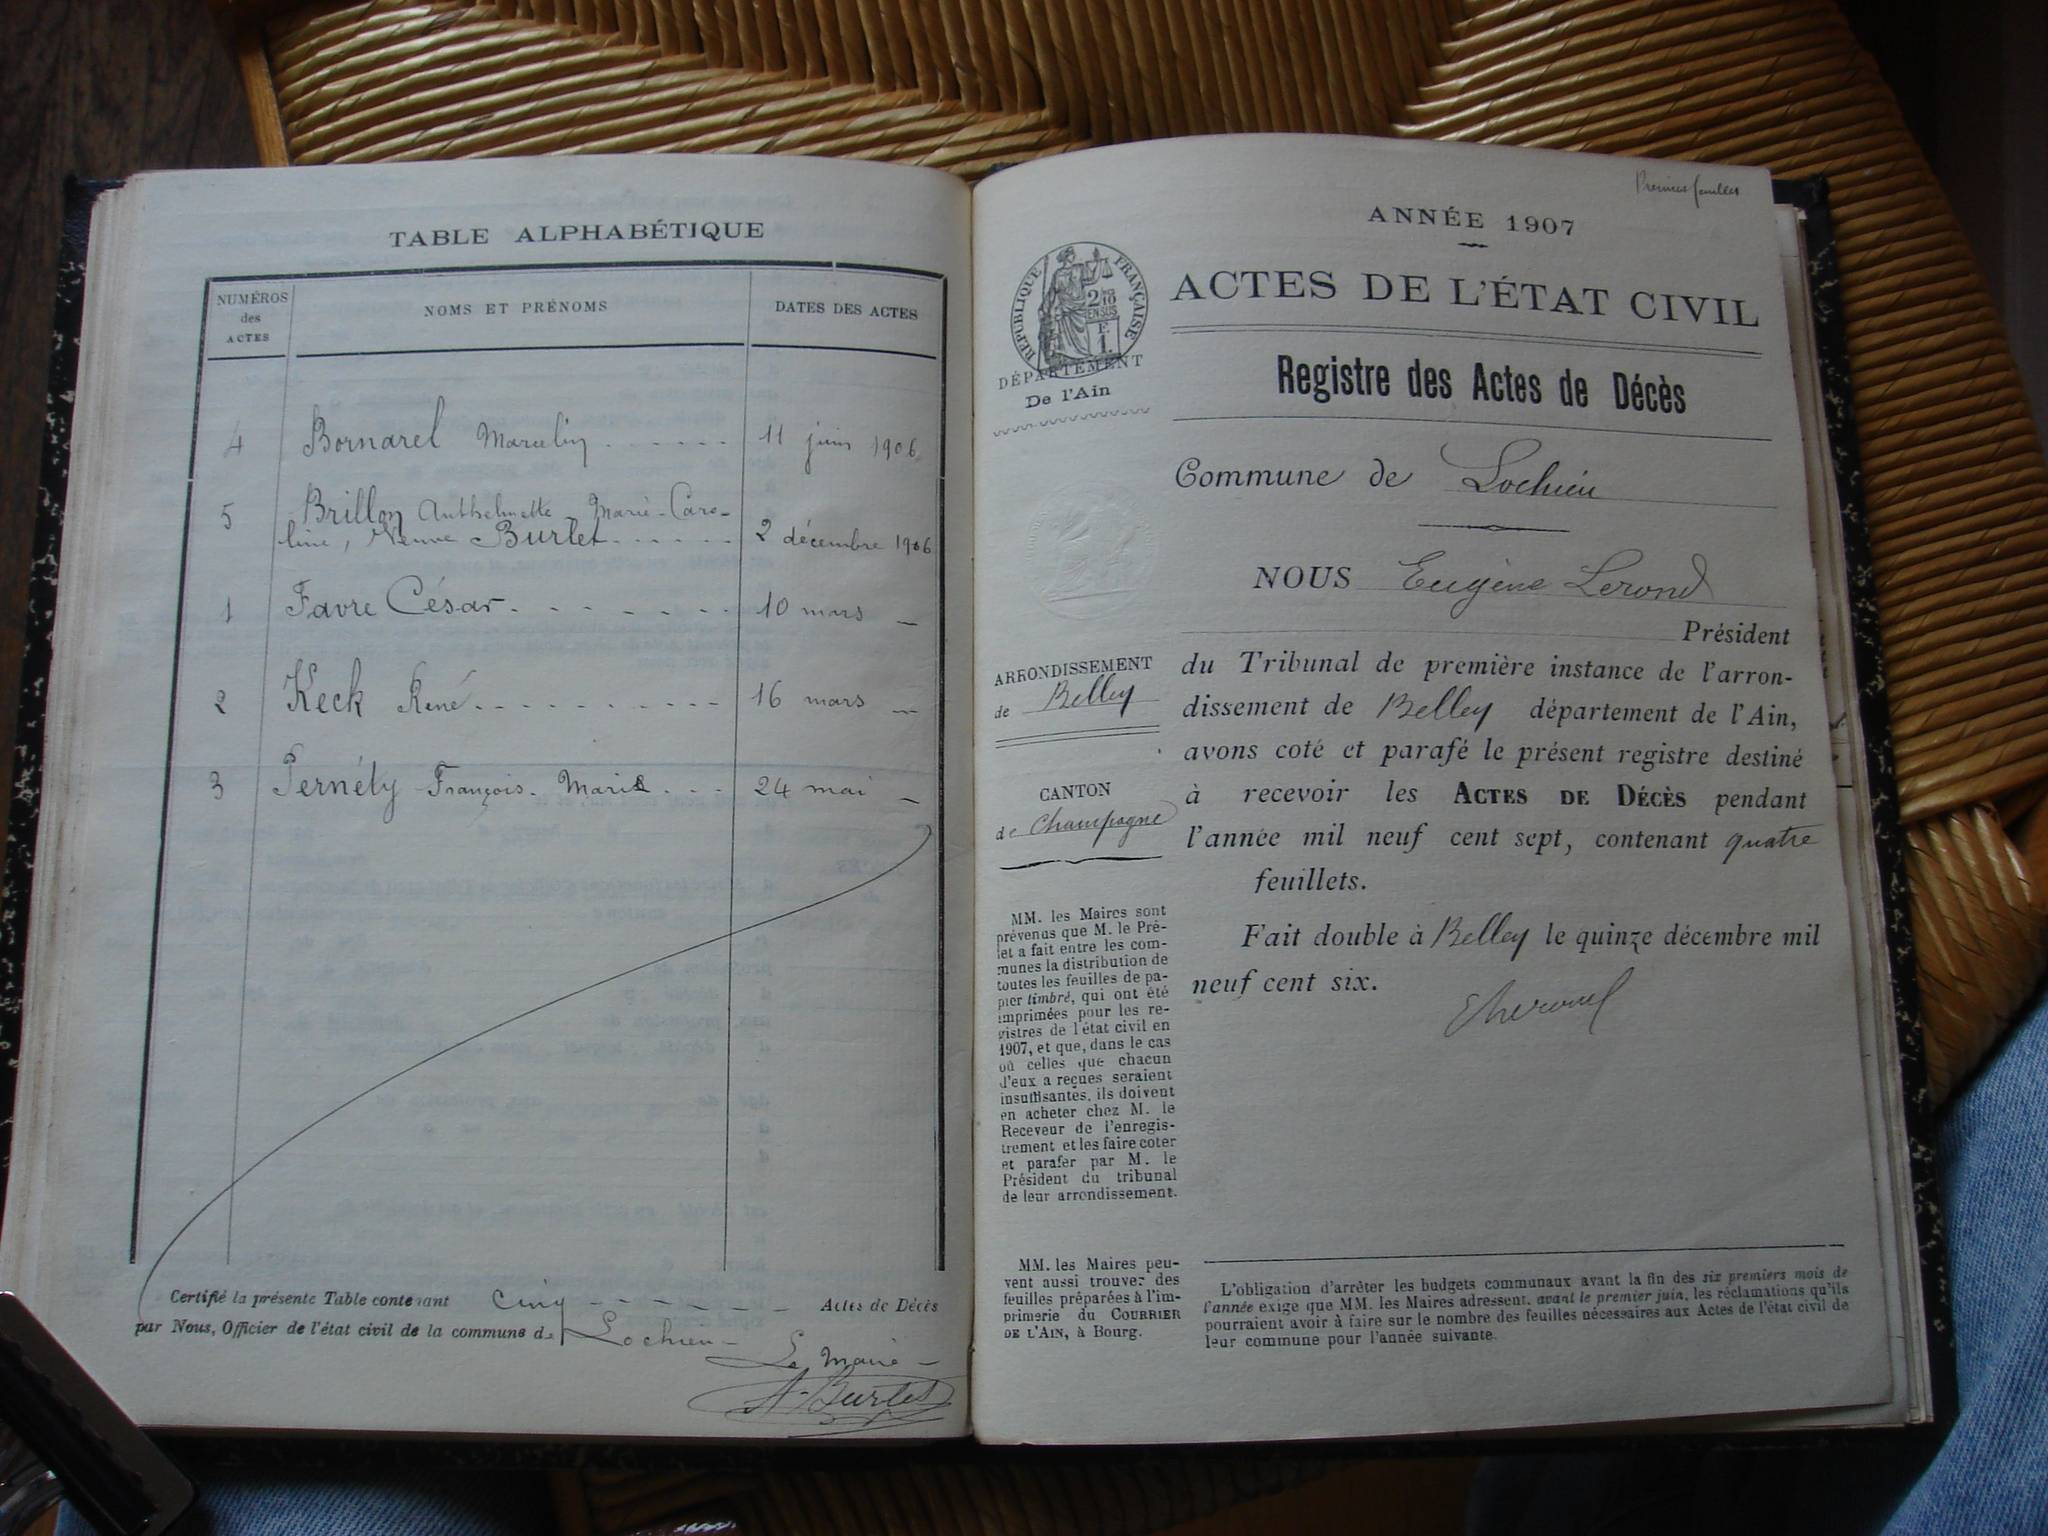 TABLE ALPHABÉTIQUE
NUMÉROS des ACTES
NOMS ET PRÉNOMS
DATES DES ACTES
4 Bornarel Marcelin . . . . . . 11 juin 1906
5 Brillon Anthelmette Marie-Caro-
line, Veuve Burlet . . . . . . 2 décembre 1906
1 Favre César . . . . . . . 10 mars —
2 Keck René . . . . . . . . . . 16 mars —
3 Pernély François-Marie . . . 24 mai —
Certifié la présente Table contenant cinq Actes de Décès
par Nous, Officier de l'état civil de la commune de Lochieu
Le Maire
A. Burlet
ANNÉE 1907
RÉPUBLIQUE FRANÇAISE
2/10 EN SUS
F. 1.
ACTES DE L'ÉTAT CIVIL
DÉPARTEMENT
De l'Ain
Registre des Actes de Décès
Commune de Lochieu
NOUS Eugène Lerond
Président
du Tribunal de première instance de l'arron-
dissement de Belley département de l'Ain,
avons coté et parafé le présent registre destiné
à recevoir les ACTES DE DÉCÈS pendant
l'année mil neuf cent sept, contenant quatre
feuillets.
Fait double à Belley le quinze décembre mil
neuf cent six.
ARRONDISSEMENT
de Belley
CANTON
de Champagne
MM. les Maires sont
prévenus que M. le Pré-
fet a fait entre les com-
munes la distribution de
toutes les feuilles de pa-
pier timbré, qui ont été
imprimées pour les re-
gistres de l'état civil en
1907, et que, dans le cas
où celles que chacun
d'eux a reçues seraient
insuffisantes, ils doivent
en acheter chez M. le
Receveur de l'enregis-
trement et les faire coter
et parafer par M. le
Président du tribunal
de leur arrondissement.
MM. les Maires peu-
vent aussi trouver des
feuilles préparées à l'im-
primerie du COURRIER
DE L'AIN, à Bourg.
L'obligation d'arrêter les budgets communaux avant la fin des six premiers mois de
l'année exige que MM. les Maires adressent, avant le premier juin, les réclamations qu'ils
pourraient avoir à faire sur le nombre des feuilles nécessaires aux Actes de l'état civil de
leur commune pour l'année suivante.